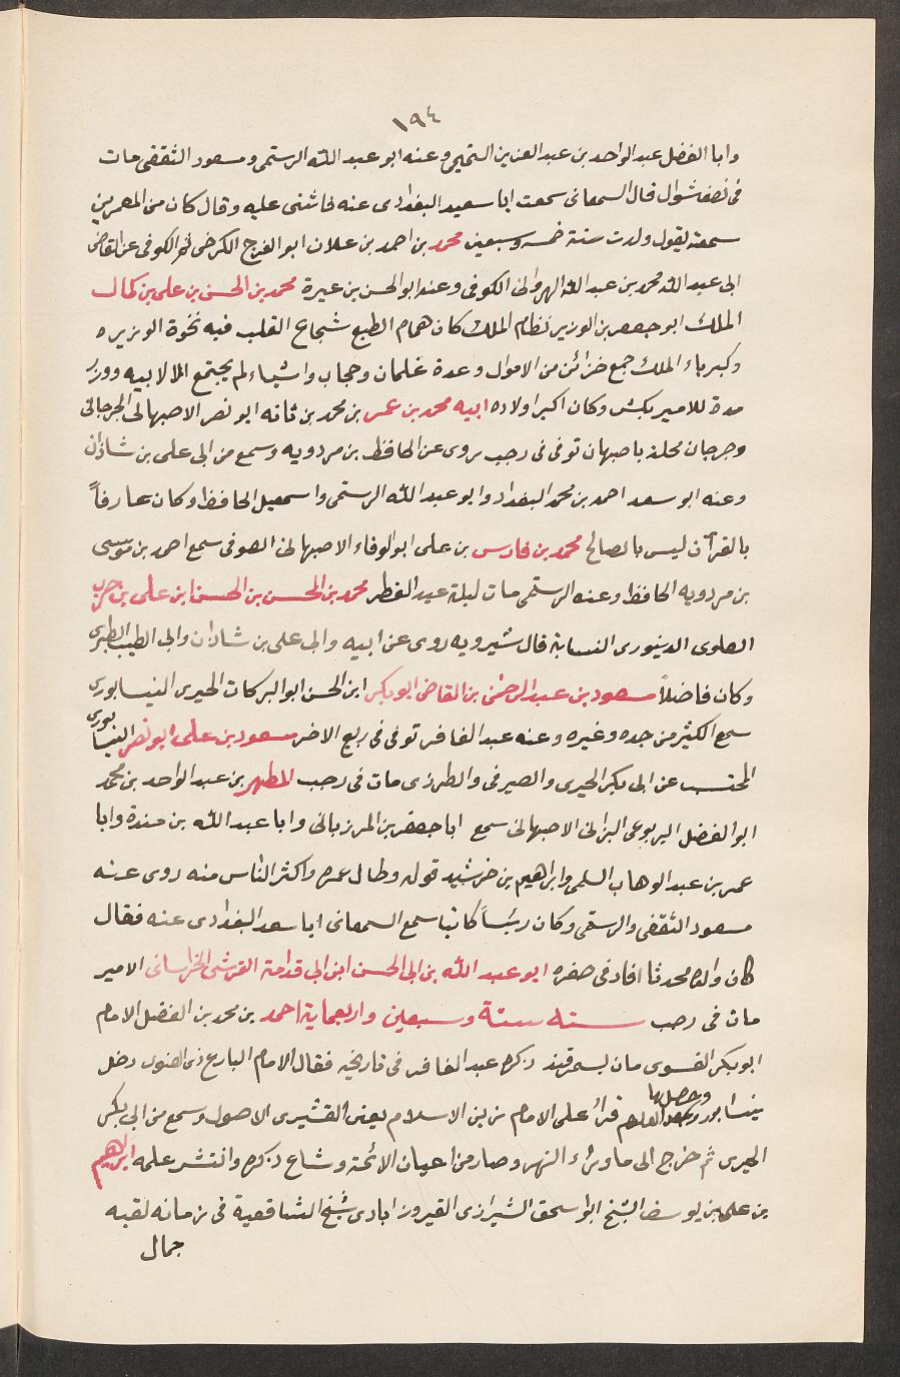 ١٩٤
وابا الفضل عبد الواحد بن عبد العزيز التميمي وعنه ابو عبد الله الرستمي ومسعود الثقفي مات
في نصف شوال قال السمعاني سمعت ابا سعيد البغدادي عنه فاثنى عليه وقال كان من المعمرين
سمعته يقول ولدت سنة خمسة وسبعين محمد بن احمد بن علان ابو الفرج الكرخي ثم الكوفي عن القاضي
ابي عبد الله محمد بن عبد الله الهرواني الكوفي وعنه ابو الحسن بن عيرة محمد بن الحسن بن علي بن كمال
الملك ابو جعفر بن الوزير نظام الملك كان همام الطبع شجاع القلب فيه نخوة الوزيره
وكبرياء الملك جمع خزائن من الاموال وعدة غلمان وحجاب واشياء لم يجتمع الا لابيه ووزر
مدة للامير بكش وكان اكبر اولاده ابيه محمد بن عمر بن محمد بن ثانه ابو نصر الاصبهاني الجرجاني
وجرجان محلة باصبهان توفي في رجب يروى عن الحافظ بن مردويه وسمع من ابي علي بن شاذان
وعنه ابو سعد احمد بن محمد البغداد وابو عبد الله الرستمي واسمعيل الحافظ وكان عارفاً
بالقرآن ليس بالصالح محمد بن فارس بن علي ابو الوفاء الاصبهاني الصوفي سمع احمد بن موسى
بن مردويه الحافظ وعنه الرستمي مات ليلة عيد الفطر محمد بن الحسن بن الحسن ابن علي بن حرب
العلوي الدينوري النسابة قال شيرويه روى عن ابيه وابي علي بن شاذان وابي الطيب الطبري
وكان فاضلاً مسعود بن عبد الرحمن بن القاضي ابو بكر ابن الحسن ابو البركات الحيري النيسابوري
سمع الكثير من جده وغيره وعنه عبد الغافر توفي في ربيع الاخر مسعود بن علي ابو نصر النيسابوري
المحتسب عن ابي بكر الحيري والصيرفي والطرزي مات في رجب المطهر بن عبد الواحد بن محمد
ابو الفضل اليربوعي البزاني الاصبهاني سمع ابا جعفر بن المرزباني وابا عبد الله بن مندة وابا
عمر بن عبد الوهاب السلمي وابراهيم بن خرشيد قوله وطال عمره واكثر الناس منه روى عنه
مسعود الثقفي والرستمي وكان رئيسا كاتبا سمع السمعاني ابا سعد البغدادي عنه فقال
كان والده محدثا افاد في صغره ابو عبد الله بن ابي الحسن ابن ابي قدامة القرشي الخراساني الامير
مات في رجب سنه ستة وسبعين واربعماية احمد بن محمد بن الفضل الامام
ابو بكر الفسوي مات بسمرقند ذكره عبد الغافر في تاريخه فقال الامام البارع ذي الفنون دخل
نيسابور وحصل بها العلوم قرأ على الامام زين الاسلام يعنى القشيري الاصول وسمع من ابي بكر
الحيري ثم خرج الى ما وراء النهر وصار من اعيان الائمة وشاع ذكره وانتشر علمه ابراهيم
بن علي بن يوسف الشيخ ابو اسحق الشيرازي الفيروز ابادي شيخ الشافعية في زمانه لقبه
جمال